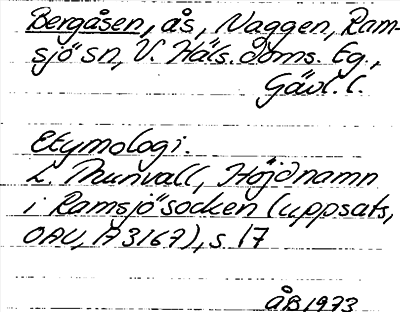 Bergåsen, ås, Naggen, Ram-
sjö sn, V. Häls. doms. Eg.,
Gävl. l.
Etymologi.
L. Thunvall, Höjdnamn
i Ramsjö socken (uppsats,
OAU, A 3167), s. 17
ÅB 1973